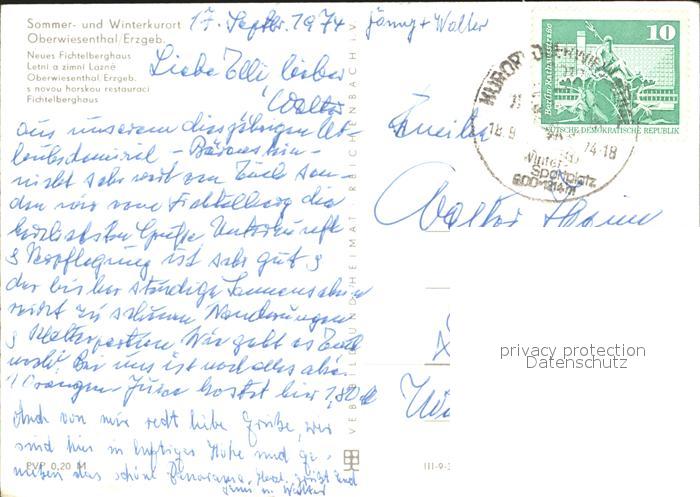 Sommer- und Winterkurort
Oberwiesenthal/Erzgeb.
Neues Fichtelberghaus
Letní a zimní Lázně
Oberwiesenthal/Erzgeb.
s novou horskou restaurací
Fichtelberghaus
17. Septbr. 1974
Jenny + Walter
Liebe Elli lieber
Walter
aus unserem diesjährigen Ur-
laubsdomizil - Bärenstein -
nicht sehr weit von Euch sen-
den wir vom Fichtelberg die
herzlichsten Grüße Unterkunft
& Verpflegung ist sehr gut &
der bisher ständige Sonnenschein
reizt zu schönen Wanderungen
& Kletterpartien Wie geht es Euch
noch? Bei uns ist noch alles
1 Orangen Juice kostet hier 1,80 M
Auch von mir recht liebe Grüße, wir
sind hier in luftiger Höhe und ge-
nießen das schöne Panorama. Herzl. grüßt Euch
Jenni u. Walter
EVP 0,20 M
VEB BILD UND HEIMAT REICHENBACH i. V.
III-9-
10
Berlin, Rathausstraße
DEUTSCHE DEMOKRATISCHE REPUBLIK
KURORT OBERWIESENTHAL
18.9. 74-18
Winter-
Sportplatz
900-1214 m
Familie
Walter
privacy protection
Datenschutz